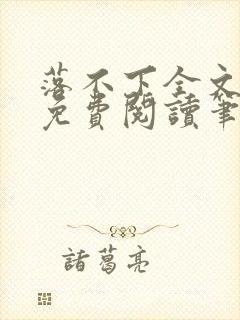 落不下全文
免費閱讀筆
諸葛亮